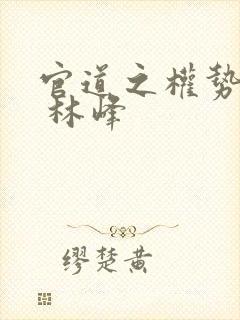 官道之權勢
林峰
缪楚黄